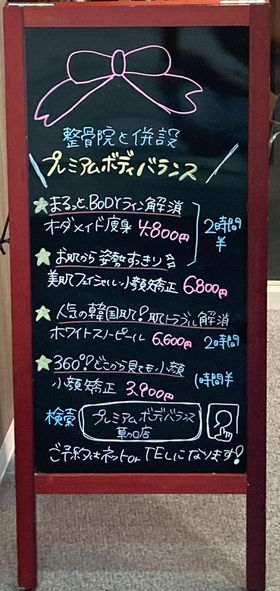 整骨院と併設
プレミアムボディバランス
★まるっとBODYライン解消
オーダメイド痩身 4.800円
2時間半
★お肌から姿勢すっきり
美肌フェイシャル小顔矯正 6.800円
★人気の韓国肌 肌トラブル解消
ホワイトスノーピール 6.600円 2時間
★360°どこから見ても小顔
小顔矯正 3.900円 1時間半
検索
プレミアムボディバランス
草の口店
ご予約はネットor TELになります!